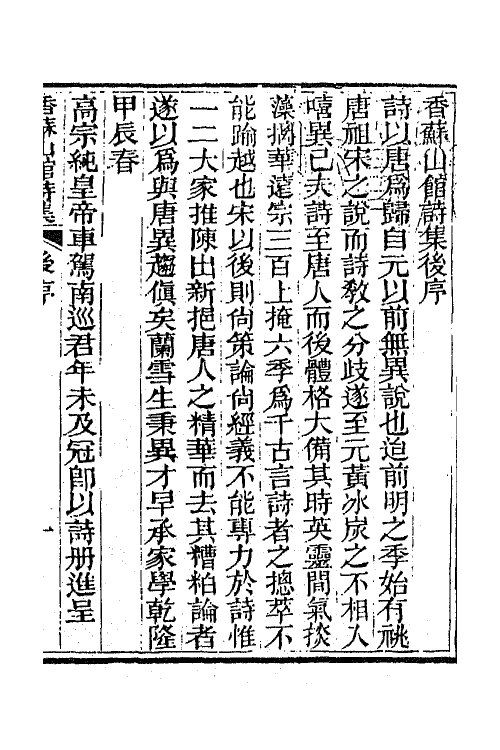 香蘇山館詩集後序
詩以唐爲歸自元以前無異說也迨前明之季始有祧
唐祖宋之說而詩敎之分歧遂至元黃冰炭之不相入
嘻異已夫詩至唐人而後體格大備其時英靈間氣掞
藻摛華遠宗三百上掩六季爲千古言詩者之摠萃不
能踰越也宋以後則尙策論尙經義不能專力於詩惟
一二大家推陳出新挹唐人之精華而去其糟粕論者
遂以爲與唐異趨傎矣蘭雪生秉異才早承家學乾隆
甲辰春
高宗純皇帝車駕南巡君年未及冠卽以詩册進呈
香蘇山館詩集 後序 一